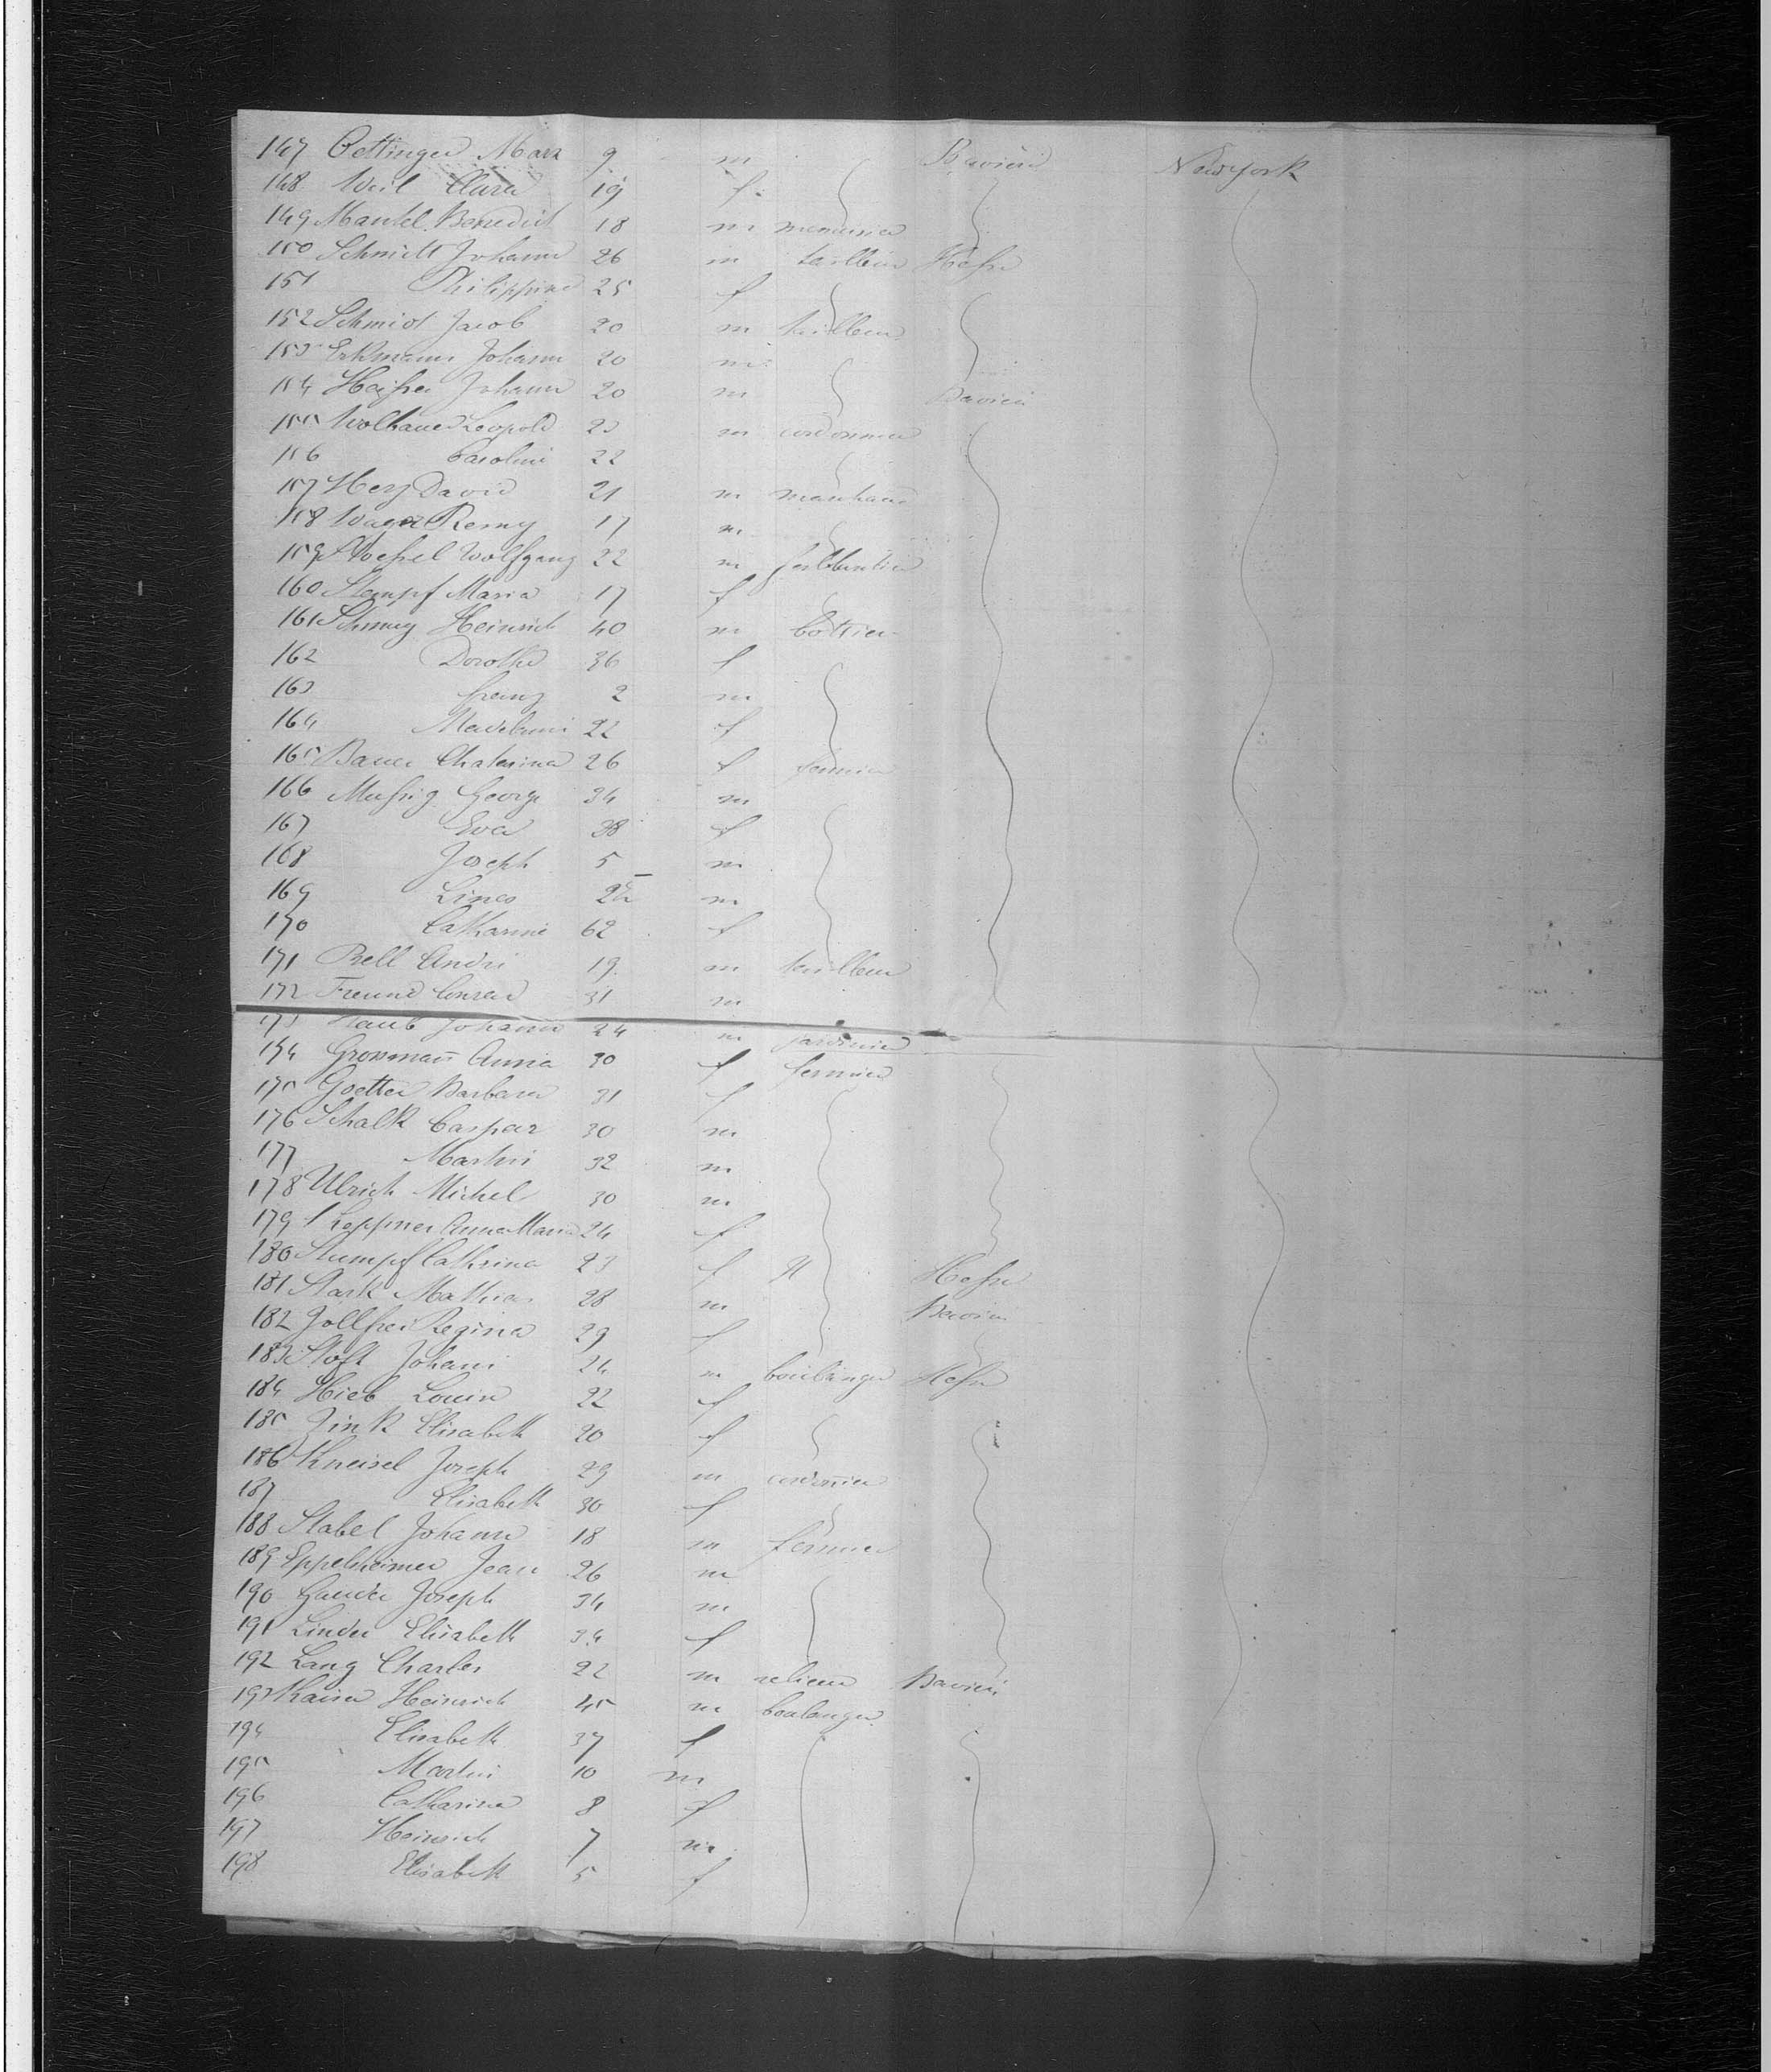 147 Oettinger Marx 9 m Bavière Newyork
148 Weil Clara 19 f
149 Mantel Benedict 18 m menuisier
150 Schmidt Johann 26 m tailleur Hesse
151 Philippine 25 f
152 Schmidt Jacob 20 m tailleur
153 Erkmann Johann 20 m
154 Johann 20 m Bavière
155 Leopold 23 m cordonnier
156 Caroline 22
157 Herz David 21 m marchand
158 Wagner Remy 17 m
159 Wolfgang 22 m ferblantier
160 Stempf Maria 17 f
161 Heinrich 40 m bottier
162 Dorothe 36 f
163 Franz 2 m
164 22 f
165 Bauer Chaterina 26 f fermier
166 Mussig George 34 m
167 Eva 38 f
168 Joseph 5 m
169 m
170 Catharine 62 f
171 Rell André 19 m tailleur
172 Freund Conrad 31 m
173 Staub Johann 24 m jardinier
174 Grosmann Anna 30 f fermier
175 Goetter Barbara 31 f
176 Schalk Caspar 30 m
177 Martin 32 m
178 Ulrich Michel 30 m
179 Anna Maria 24 f
180 Stumpf Cathrina 23 f Hesse
181 Stark Mathias 28 m Bavière
182 Regina 29 f
183 Stoft Johann 24 m boulanger Hesse
184 Hieb Louise 22 f
185 Zink Elisabeth 20 f
186 Kneisel Joseph 29 m cordonnier
187 Elisabeth 30 f
188 Stabel Johann 18 m fermier
189 Eppelsheimer Jean 26 m
190 Joseph 34 m
191 Linder Elisabeth 34 f
192 Lang Charles 22 m relieur Bavière
193 Kaiser Heinrich 45 m boulanger
194 Elisabeth 37 f
195 Martin 10 m
196 Catharina 8 f
197 Heinrich 7 m
198 Elisabeth 5 f